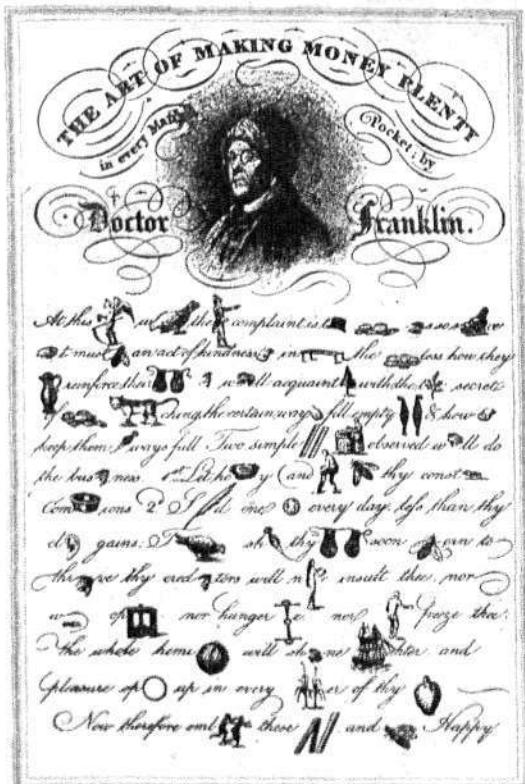 THE ART OF MAKING MONEY PLENTY
in every Man's Pocket; by
Doctor Franklin.
At this the complaint is
must an act of kindness in the less how they
reinforce their w ll acquaint with the secret
of ching, the certain way fill empty & how
keep them ways full. Two simple observed w ll do
the bus ness. 1st Let ho y and thy const
Com ions 2d S d one every day less than thy
cl gains. T sh thy soon in to
thr ve thy cred tors will n insult thee, nor
w op nor hunger e nor freeze thee.
The whole hemi will sh ne hter and
pleasure sp up in every er of thy
Now therefore emb these and Happy